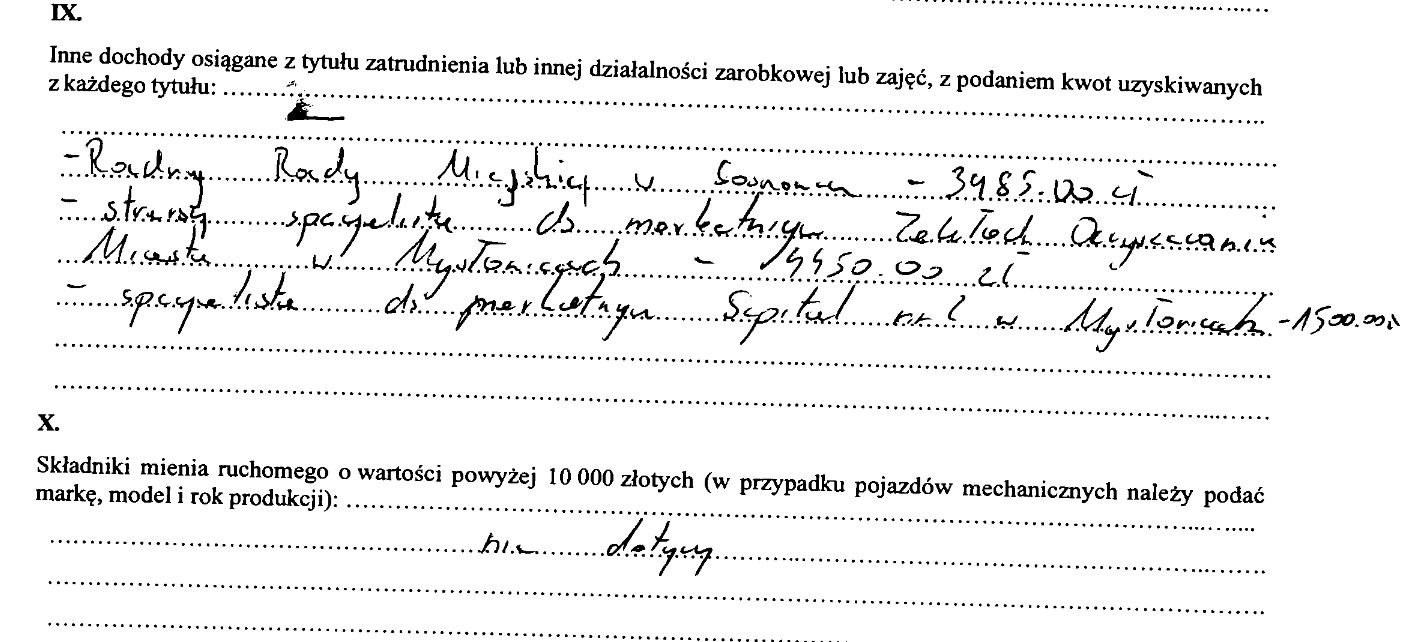 IX.
Inne dochody osiągane z tytułu zatrudnienia lub innej działalności zarobkowej lub zajęć, z podaniem kwot uzyskiwanych
z każdego tytułu:
- Radny Rady Miejskiej w Sosnowcu - 3985.00 zł
- starszy specjalista ds marketingu Zakładach Oczyszczania
Miasta w Mysłowicach - 4450.00 zł
- specjalista ds marketingu Szpital nr 2 w Mysłowicach - 1500.00
X.
Składniki mienia ruchomego o wartości powyżej 10 000 złotych (w przypadku pojazdów mechanicznych należy podać
markę, model i rok produkcji):
nie dotyczy